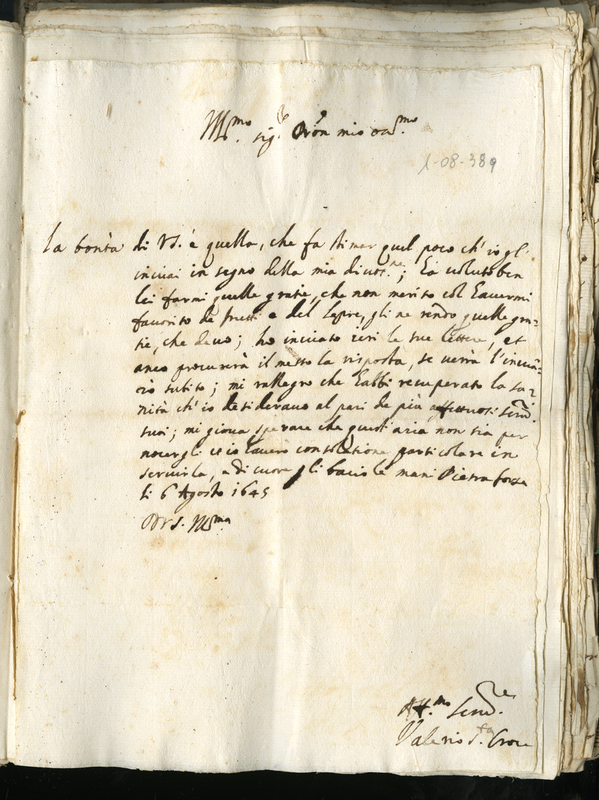 Ill.mo sig.re Pron mio oss.mo
1-08-389
La bontà di VS. è quella, che fa stimar quel poco ch'io gl'
inviai in segno della mia divot.ne; Ha voluto ben
lei farmi quelle gratie, che non merito col havermi
favorito de frutti, e del lepre, gli ne rendo quelle gra-
tie, che devo; ho inviato ieri le sue lettere, et
anco procurerà il messo la risposta, se verrà l'invie-
rò subito; mi rallegro che habbi recuperato la sa-
nità ch'io desideravo al pari de più affettuosi serri
suoi; mi giova sperare che quest'aria non sia per
nocergli et io havero consolatione particolare in
servirla, e di cuore gli bacio le mani Pietra forza
li 6 Agosto 1645
Di VS. Ill.ma
Aff.mo Ser.re
Valerio S.ta Croce